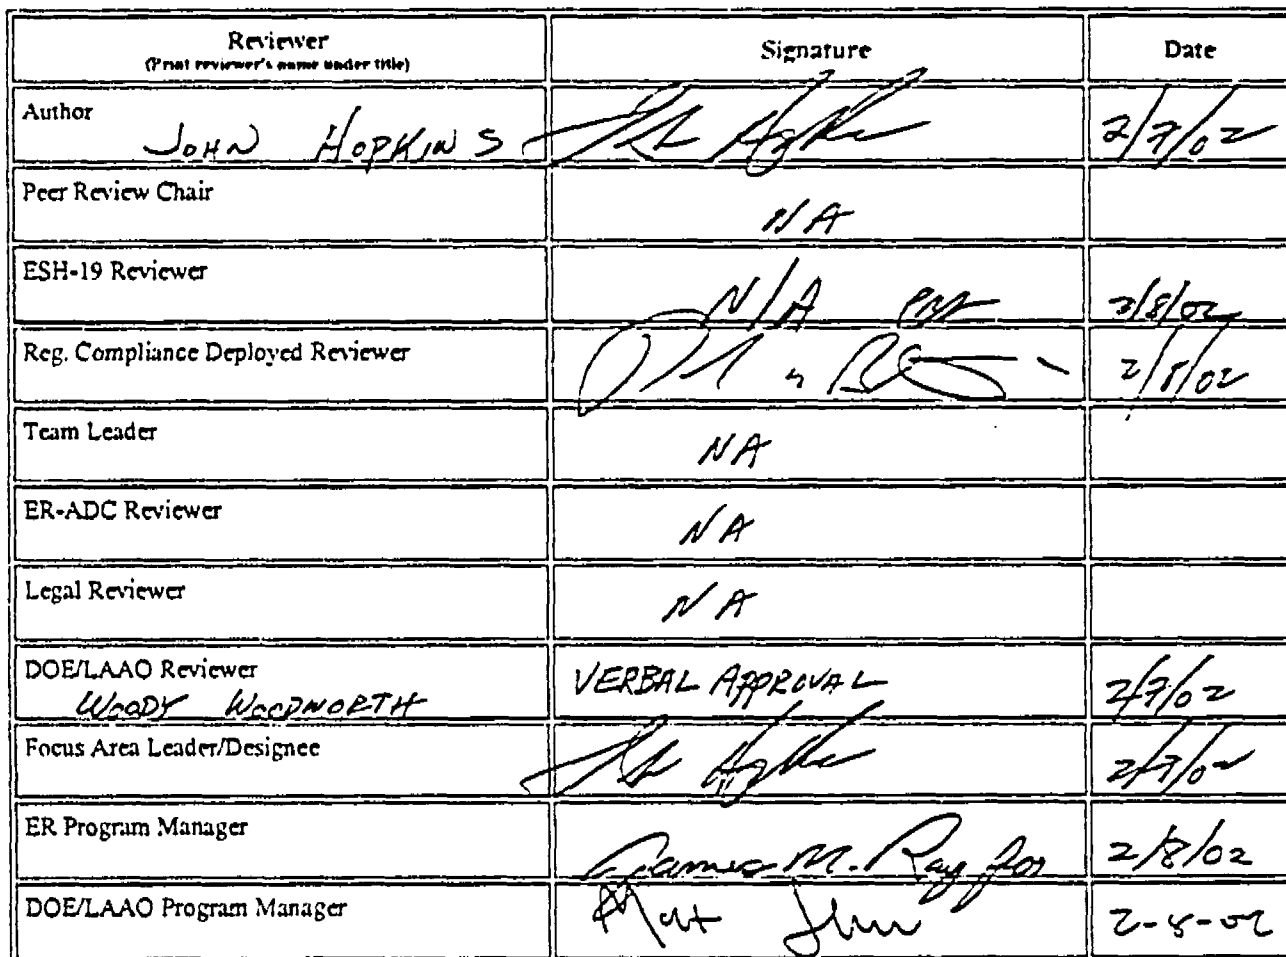 Reviewer Signature Date
(Print reviewer's name under title)
Author
JOHN HOPKINS 2/7/02
Peer Review Chair
NA
ESH-19 Reviewer
N/A
Reg. Compliance Deployed Reviewer 2/8/02
Team Leader
NA
ER-ADC Reviewer
NA
Legal Reviewer
NA
DOE/LAAO Reviewer VERBAL APPROVAL 2/7/02
WOODY WOODWORTH
Focus Area Leader/Designee 2/7/02
ER Program Manager
James M. Ray for 2/8/02
DOE/LAAO Program Manager